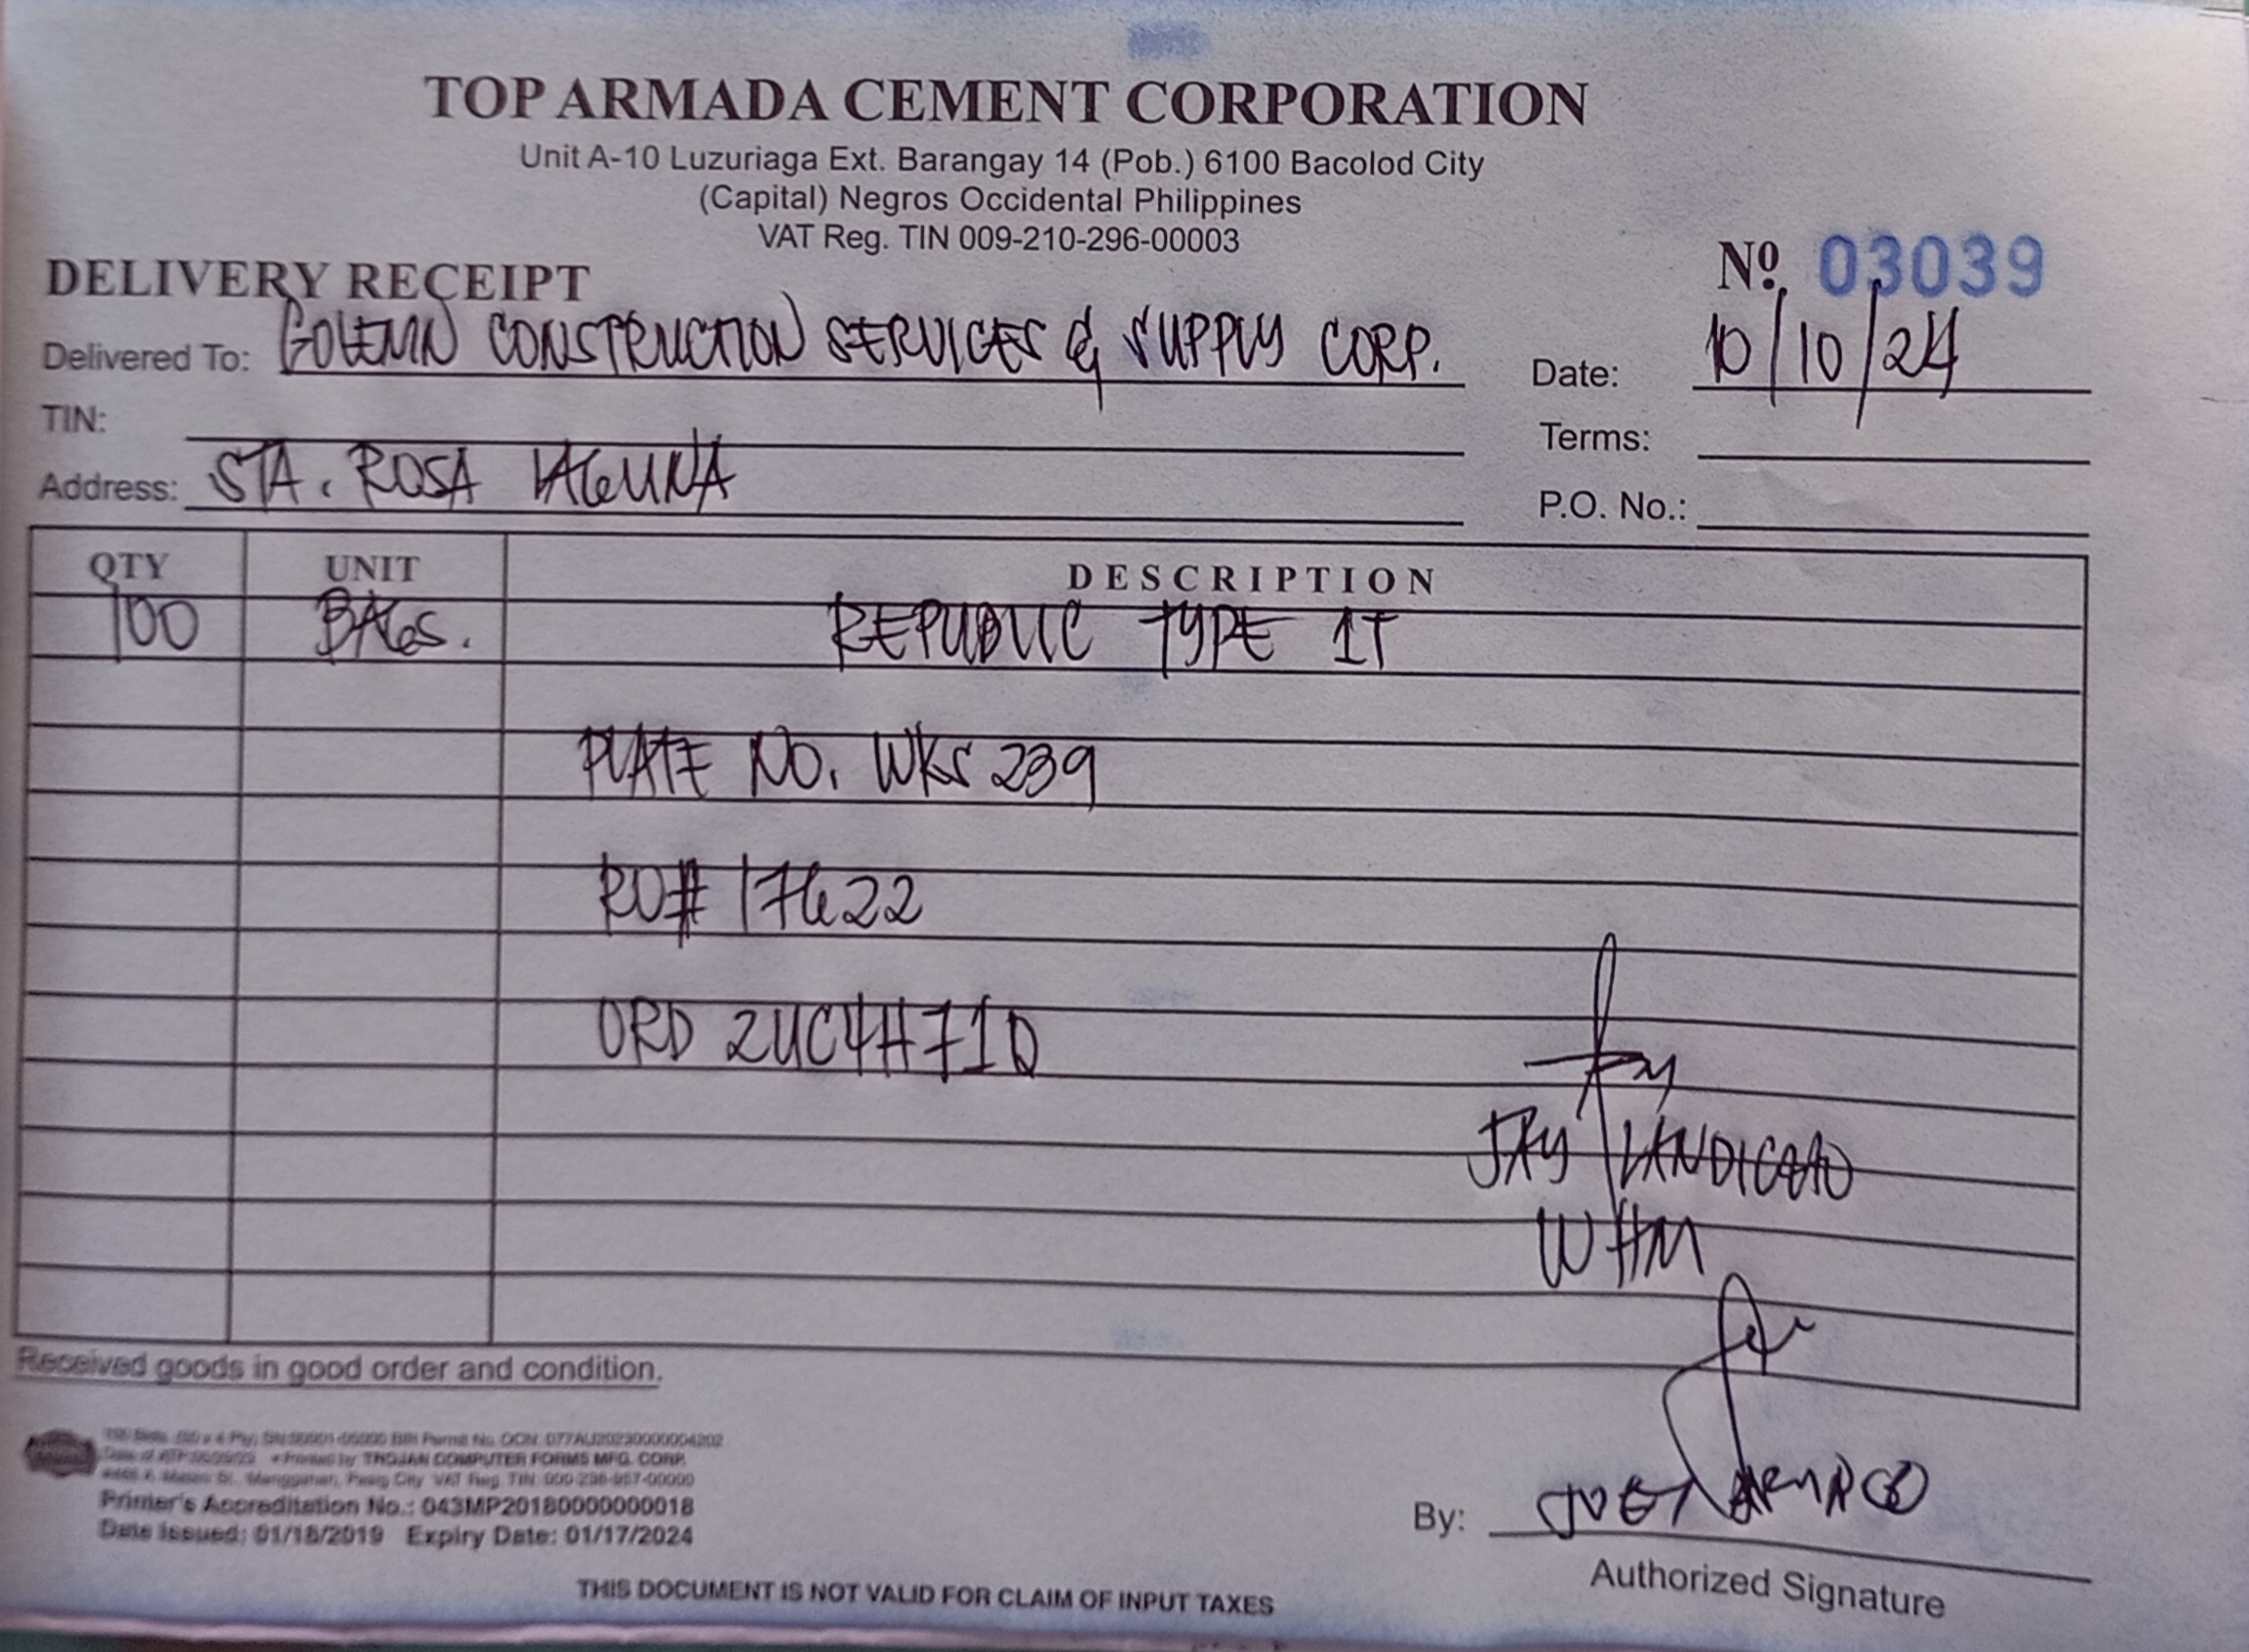 TOP ARMADA CEMENT CORPORATION
Unit A-10 Luzuriaga Ext. Barangay 14 (Pob.) 6100 Bacolod City
(Capital) Negros Occidental Philippines
VAT Reg. TIN 009-210-296-00003
DELIVERY RECEIPT
Nº 03039
Delivered To: GOLEMN CONSTRUCTION SERVICES & SUPPLY CORP.
Date: 10/10/24
TIN:
Terms:
Address: STA. ROSA LAGUNA
P.O. No.:
QTY UNIT DESCRIPTION
100 BAGS. REPUBLIC TYPE 1T
PLATE NO. WKS 239
RO# 17622
ORD 2UC4H71Q
JAY LANDICHO
WHM
Received goods in good order and condition.
THIS DOCUMENT IS NOT VALID FOR CLAIM OF INPUT TAXES
Printer's Accreditation No.: 043MP20180000000018
Date Issued: 01/18/2019 Expiry Date: 01/17/2024
By: JOEY
Authorized Signature